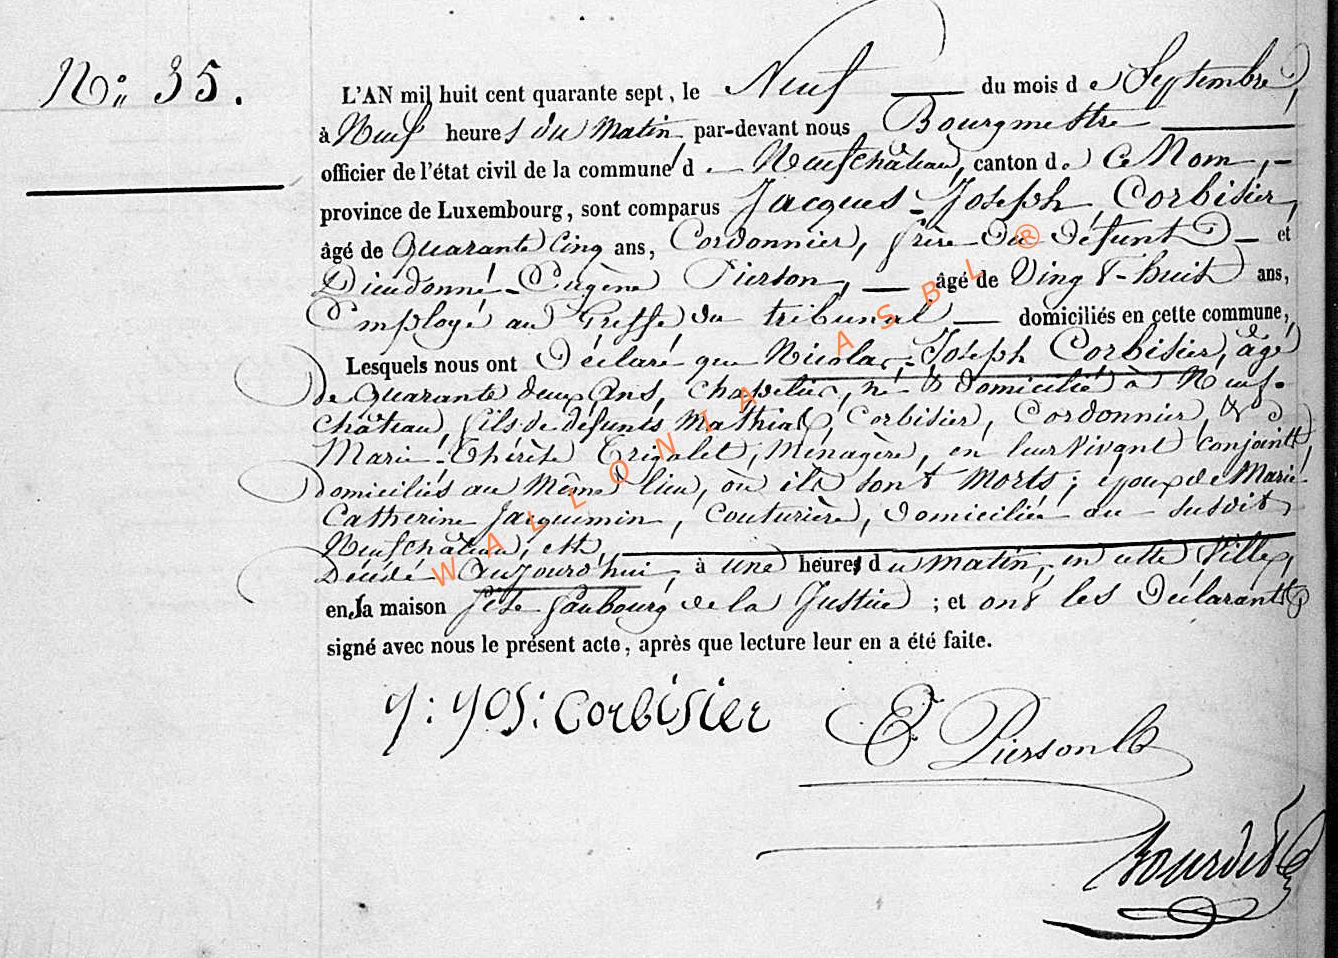 N.º 35.
L'AN mil huit cent quarante sept, le Neuf du mois de Septembre,
à Neuf heures du matin, par-devant nous Bourgmestre
officier de l'état civil de la commune de Neufchâteau, canton de Ce Nom, -
province de Luxembourg, sont comparus Jacques-Joseph Corbisier,
âgé de Quarante Cinq ans, Cordonnier, frère du défunt - et
Dieudonné-Eugène Pierson, - âgé de Vingt-huit ans,
Employé au Greffe du tribunal - domiciliés en cette commune,
Lesquels nous ont Déclaré que Nicolas-Joseph Corbisier, âgé
de Quarante deux ans, chapelier, né & domicilié à Neuf-
château, fils de défunts Mathias Corbisier, Cordonnier, & d
Marie-Thérèse Trigalet, Ménagère, en leur vivant conjoints,
domiciliés au même lieu, où ils sont morts; époux de Marie
Catherine Jacquemin, Couturière, domiciliée au susdit
Neufchâteau, est,
Décédé aujourd'hui, à une heures du matin, en cette Ville,
en la maison sise faubourg de la Justice; et ont les Déclarants
signé avec nous le présent acte, après que lecture leur en a été faite.
J: JOS: Corbisier
E Pierson
WALLONIA ASBL ®